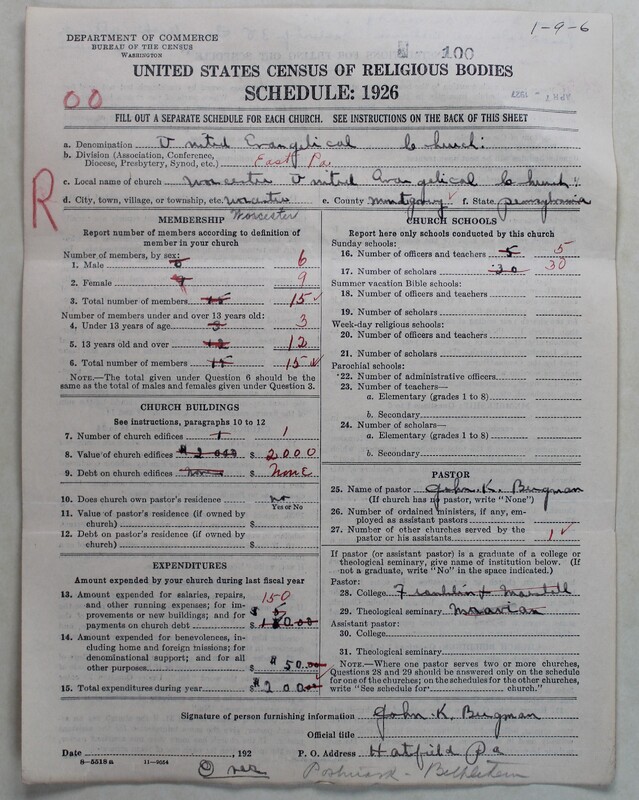 1-9-6
DEPARTMENT OF COMMERCE
BUREAU OF THE CENSUS
WASHINGTON
100
UNITED STATES CENSUS OF RELIGIOUS BODIES
SCHEDULE: 1926
00
FILL OUT A SEPARATE SCHEDULE FOR EACH CHURCH. SEE INSTRUCTIONS ON THE BACK OF THIS SHEET
a. Denomination United Evangelical Church
b. Division (Association, Conference,
Diocese, Presbytery, Synod, etc.) East Pa
c. Local name of church Worcester United Evangelical Church
R
d. City, town, village, or township, etc. Worcester e. County Montgomery f. State Pennsylvania
Worcester
MEMBERSHIP
Report number of members according to definition of
member in your church
Number of members, by sex:
1. Male 6
2. Female 9
3. Total number of members 15 15
Number of members under and over 13 years old:
4. Under 13 years of age 3 3
5. 13 years old and over 12 12
6. Total number of members 15 15
NOTE.—The total given under Question 6 should be the
same as the total of males and females given under Question 3.
CHURCH BUILDINGS
See instructions, paragraphs 10 to 12
7. Number of church edifices 1 1
8. Value of church edifices $2000 $ 2000
9. Debt on church edifices None $ None
10. Does church own pastor's residence No
Yes or No
11. Value of pastor's residence (if owned by
church) $
12. Debt on pastor's residence (if owned by
church) $
EXPENDITURES
Amount expended by your church during last fiscal year
13. Amount expended for salaries, repairs, 150
and other running expenses; for im-
provements or new buildings; and for
payments on church debt $
14. Amount expended for benevolences, in-
cluding home and foreign missions; for
denominational support; and for all
other purposes $50.00
15. Total expenditures during year $200.00
CHURCH SCHOOLS
Report here only schools conducted by this church
Sunday schools:
16. Number of officers and teachers 5 5
17. Number of scholars 30 30
Summer vacation Bible schools:
18. Number of officers and teachers
19. Number of scholars
Week-day religious schools:
20. Number of officers and teachers
21. Number of scholars
Parochial schools:
22. Number of administrative officers
23. Number of teachers—
a. Elementary (grades 1 to 8)
b. Secondary
24. Number of scholars—
a. Elementary (grades 1 to 8)
b. Secondary
PASTOR
25. Name of pastor John K. Bergman
(If church has no pastor, write "None")
26. Number of ordained ministers, if any, em-
ployed as assistant pastors
27. Number of other churches served by the
pastor or his assistants 1
If pastor (or assistant pastor) is a graduate of a college or
theological seminary, give name of institution below. (If
not a graduate, write "No" in the space indicated.)
Pastor:
28. College Franklin & Marshall
29. Theological seminary Moravian
Assistant pastor:
30. College
31. Theological seminary
NOTE.—Where one pastor serves two or more churches,
Questions 28 and 29 should be answered only on the schedule
for one of the churches; on the schedules for the other churches,
write "See schedule for church."
Signature of person furnishing information John K. Bergman
Official title
Date , 192 P. O. Address Hatfield Pa
8—5518a 11—9054
Over Postmark - Bethlehem